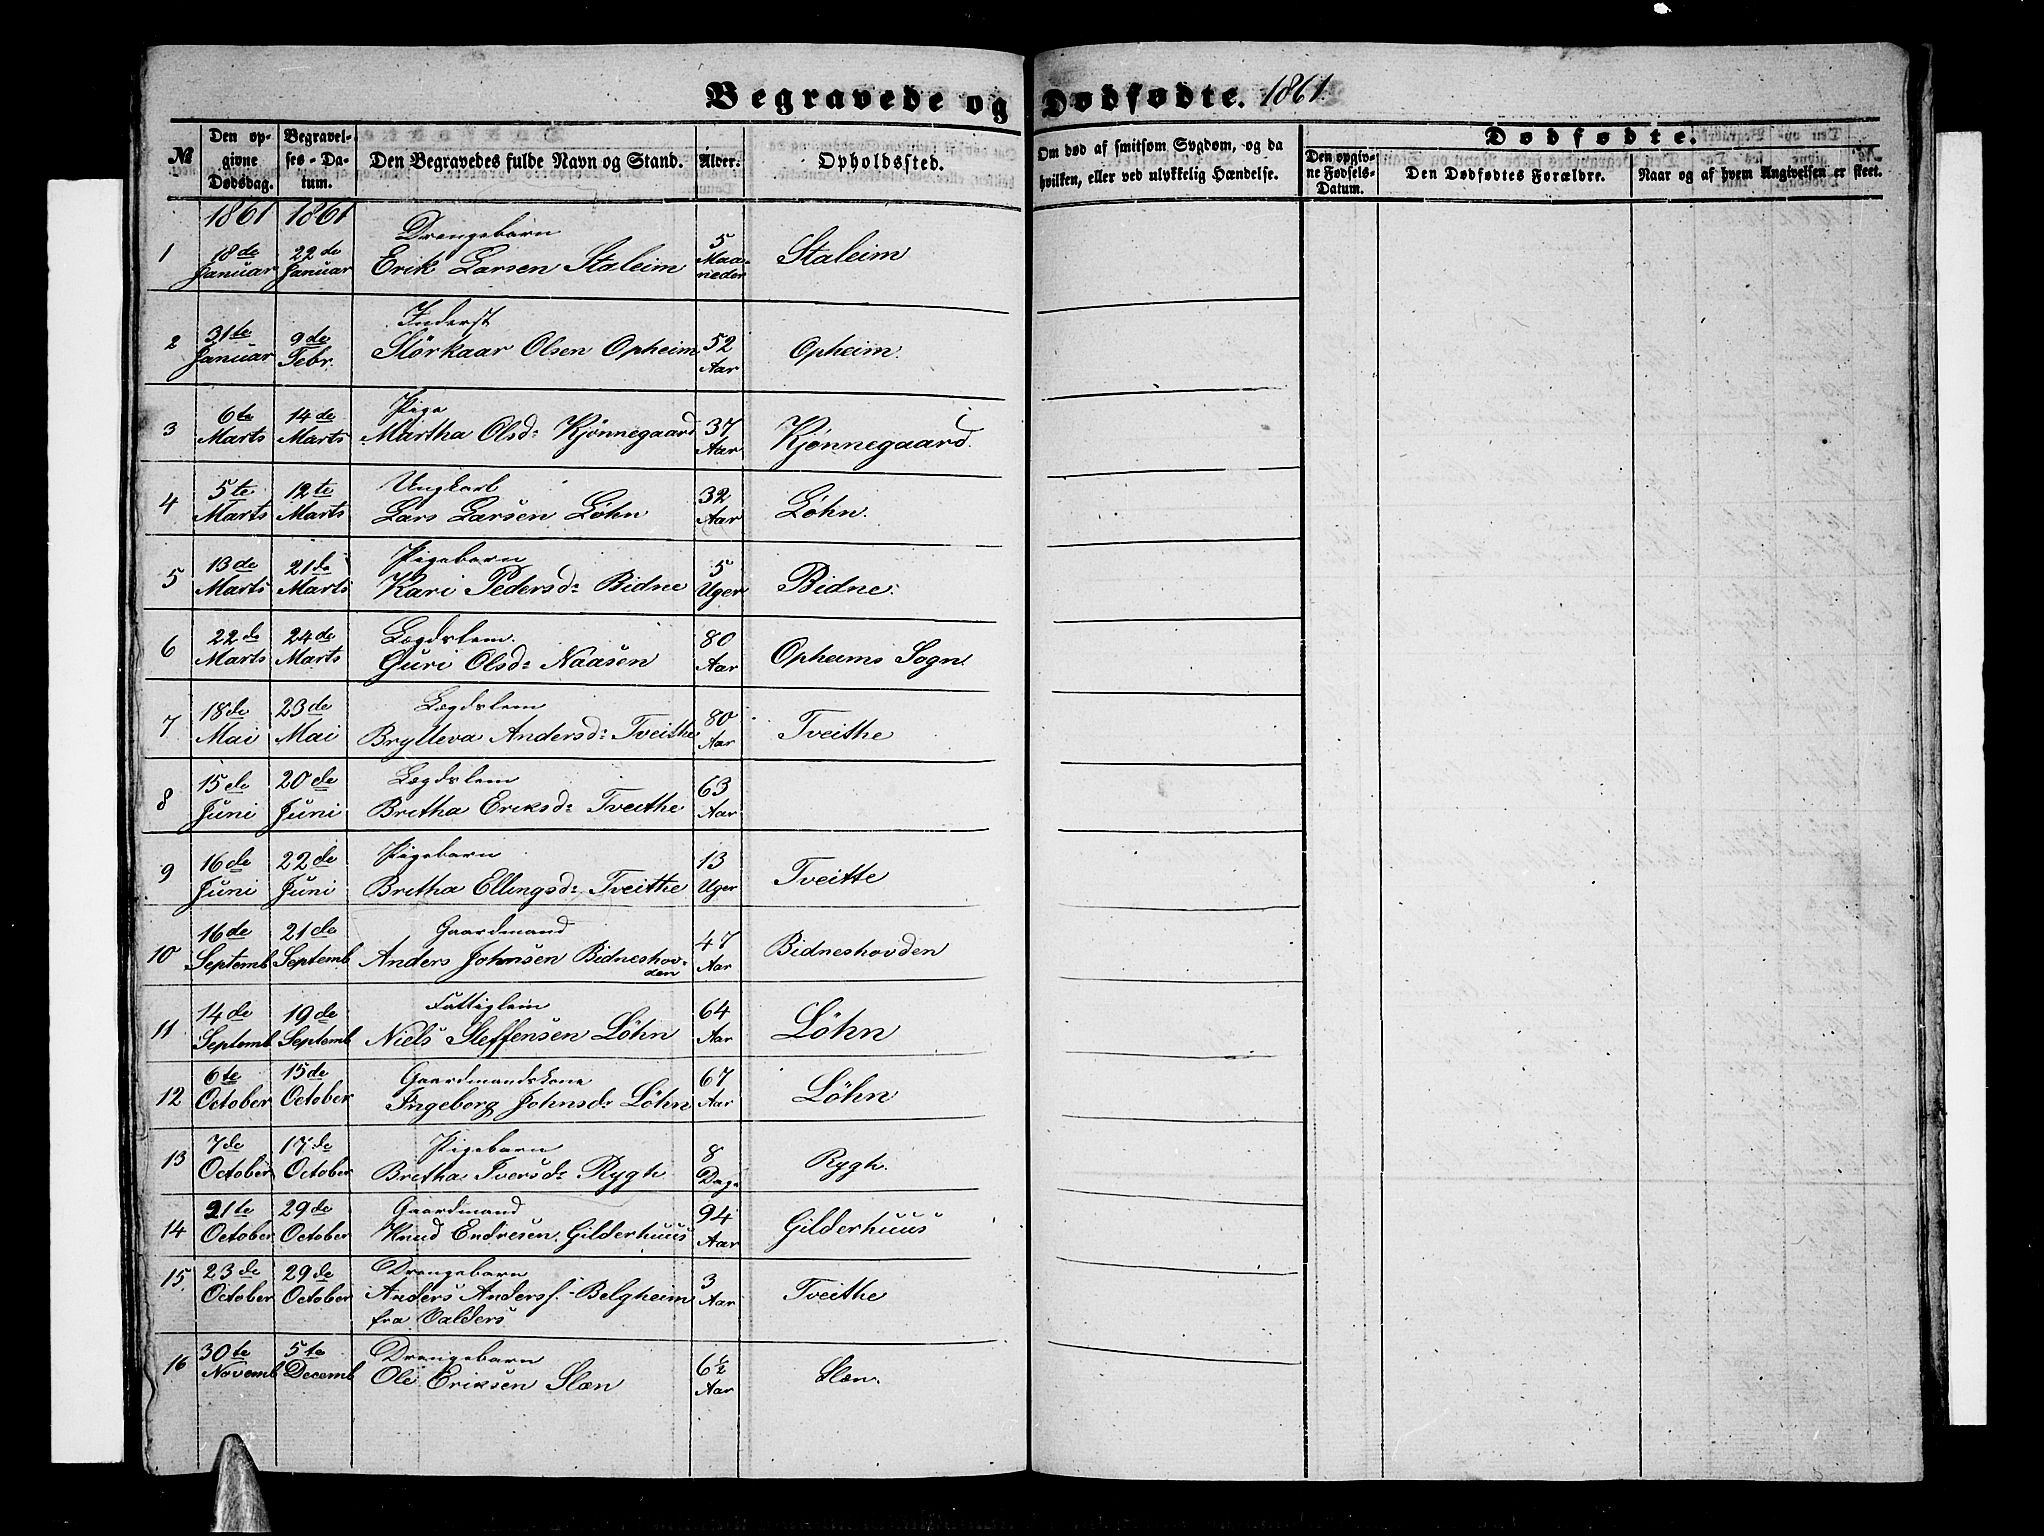 Begravede og Dødfødte. 1861.
№
Den opgivne Dødsdag.
Begravelses-Datum.
Den Begravedes fulde Navn og Stand.
Alder.
Opholdssted.
Om død af smitsom Sygdom, og da hvilken, eller ved ulykkelig Hændelse.
Dødfødte.
Den opgivne Fødsels-Datum.
Den Dødfødtes Forældre.
Naar og af hvem Angivelsen er skeet.
1861 1861
Drengebarn
1 18de Januar 22de Januar Erik Larsen Staleim 5 Maaneder Staleim
Inderst
2 31te Januar 9de Febr. Störkaar Olsen Opheim 52 Aar Opheim.
Pige
3 6te Marts 14de Marts Martha Olsd: Kjönnegaard 37 Aar Kjönnegaard.
Ungkarl
4 5te Marts 12te Marts Lars Larsen Löhn 32 Aar Löhn.
Pigebarn
5 13de Marts 21de Marts Kari Pedersd: Bidne 5 Uger Bidne.
Lægdslem.
6 22de Marts 24de Marts Guri Olsd: Naasen 80 Aar Opheims Sogn.
Lægdslem
7 18de Mai 23de Mai Brylleva Andersd: Tveithe 80 Aar Tveithe
Lægdslem
8 15de Juni 20de Juni Bretha Eriksd: Tveithe 63 Aar
Pigebarn
9 16de Juni 22de Juni Bretha Ellingsd: Tveithe 13 Uger Tveitte
Gaardmand
10 16de Septemb. 21de Septemb. Anders Johnsen Bidneshovden 47 Aar Bidneshovden
Fattiglem
11 14de Septemb. 19de Septemb. Niels Steffensen Löhn 64 Aar Löhn
Gaardmandskone
12 6te October 15de October Ingeborg Johnsd: Löhn 67 Aar Löhn
Pigebarn
13 7de October 17de October Bretha Iversd: Rygh 8 Dage Rygh.
Gaardmand
14 21te October 29de October Knud Endresen Gilderhuus 94 Aar Gilderhuus
Drengebarn
15 23de October 29de October Anders Andersf. Belgheim 3 Aar Tveithe
fra Valders
Drengebarn
16 30te Novemb. 5te Decemb. Ole Eriksen Slæn 6½ Aar Slæn.